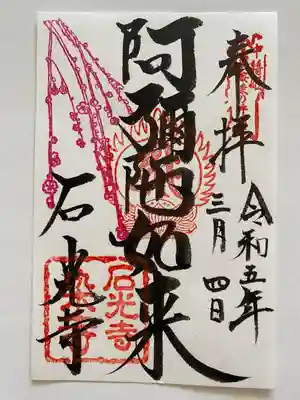 奉拝
令和五年
三月四日
阿彌陀如来
石光寺
石光寺